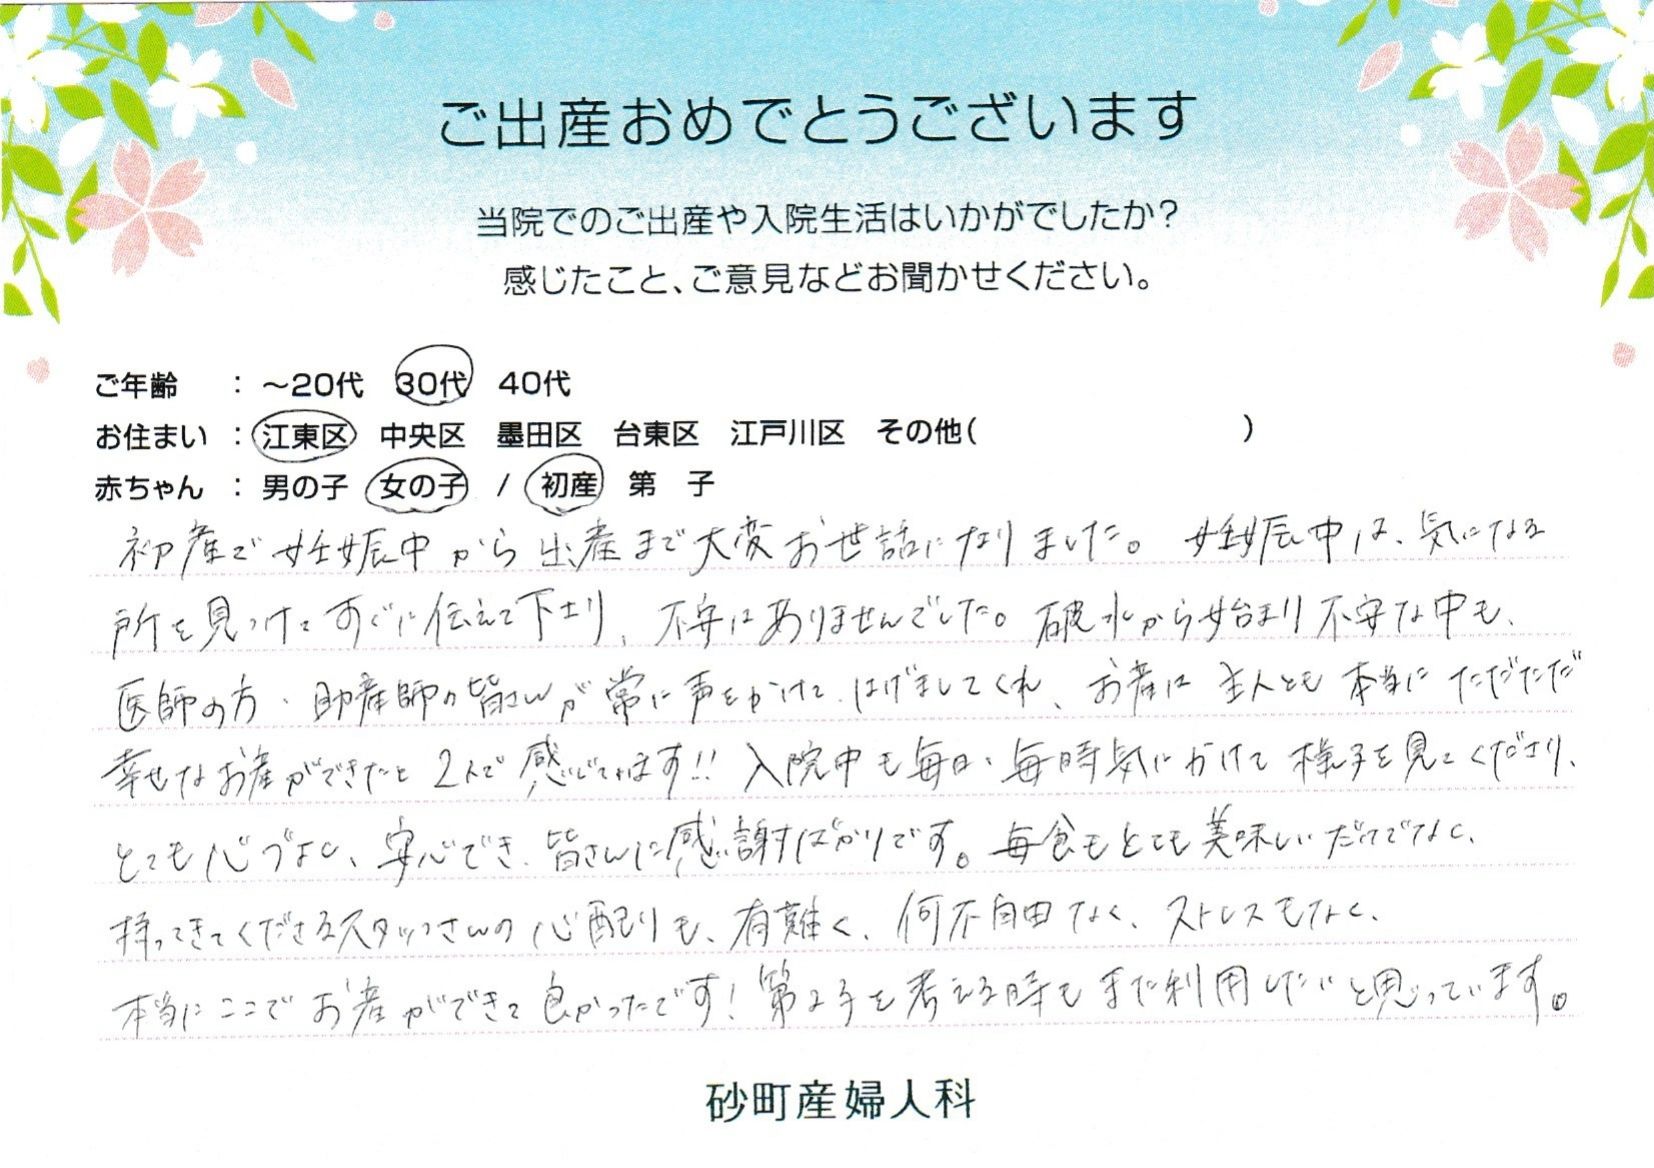 ご出産おめでとうございます
当院でのご出産や入院生活はいかがでしたか？
感じたこと、ご意見などお聞かせください。
ご年齢 ： ～20代 30代 40代
お住まい ： 江東区 中央区 墨田区 台東区 江戸川区 その他（ ）
赤ちゃん ： 男の子 女の子 / 初産 第 子
初産で妊娠中から出産まで大変お世話になりました。妊娠中は、気になる
所を見つけてすぐに伝えて下さり、不安はありませんでした。破水から始まり不安な中も、
医師の方、助産師の皆さんが常に声をかけて、はげましてくれ、お産は主人とも本当にただただ
幸せなお産ができたと2人で感じてます!! 入院中も毎日、毎時気にかけて様子を見てくださり、
とても心づよく、安心でき、皆さんに感謝ばかりです。毎食もとても美味しいだけでなく、
持ってきてくださるスタッフさんの心配りも、有難く、何不自由なく、ストレスもなく、
本当にここでお産ができて良かったです！第2子を考える時もまた利用したいと思っています。
砂町産婦人科